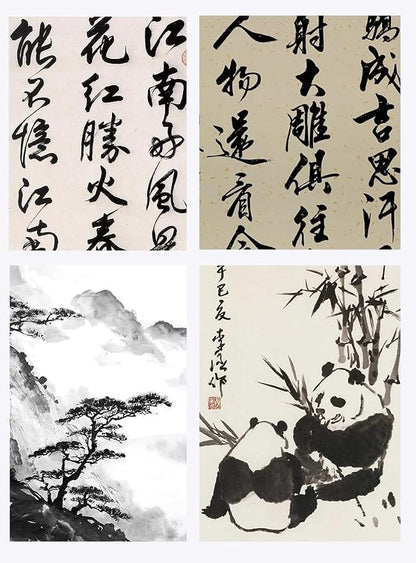 江南好風景
花紅勝火春
能不憶江南
驕成吉思汗
射大雕俱往
人物還看今
巳夏
作